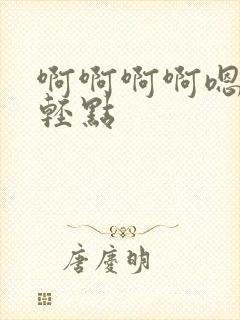 啊啊啊啊嗯
輕點
唐慶明